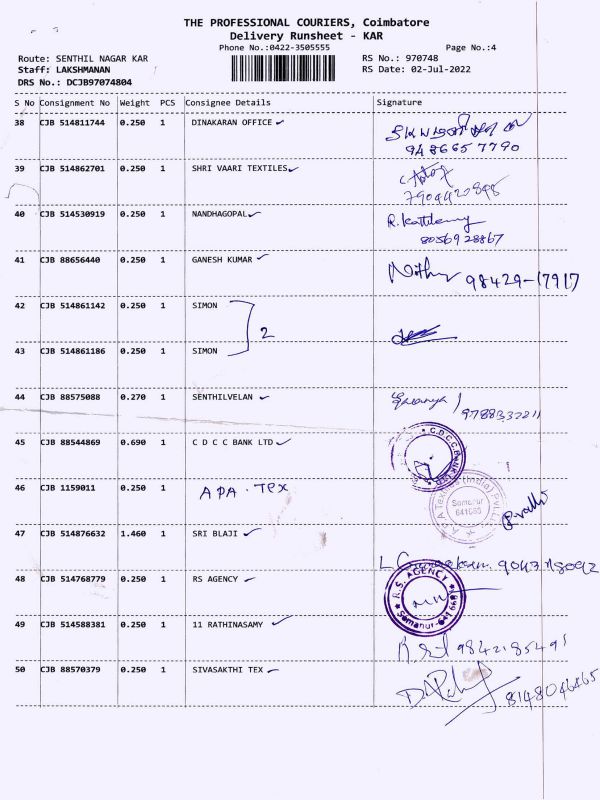 THE PROFESSIONAL COURIERS, Coimbatore
Delivery Runsheet - KAR
Phone No.:0422-3505555
Page No.:4
Route: SENTHIL NAGAR KAR
RS No.: 970748
Staff: LAKSHMANAN
RS Date: 02-Jul-2022
DRS No.: DCJB97074804
S No Consignment No Weight PCS Consignee Details Signature
38 CJB 514811744 0.250 1 DINAKARAN OFFICE
94 86657790
39 CJB 514862701 0.250 1 SHRI VAARI TEXTILES
40 CJB 514530919 0.250 1 NANDHAGOPAL R.
8056928867
41 CJB 88656440 0.250 1 GANESH KUMAR 98429-17917
42 CJB 514861142 0.250 1 SIMON
2
43 CJB 514861186 0.250 1 SIMON
44 CJB 88575088 0.270 1 SENTHILVELAN
9788332211
45 CJB 88544869 0.690 1 C D C C BANK LTD
46 CJB 1159011 0.250 1 APA. TEX
Somanur
641668
47 CJB 514876632 1.460 1 SRI BLAJI
48 CJB 514768779 0.250 1 RS AGENCY
R.S. AGENCY
Somanur-641668
49 CJB 514588381 0.250 1 11 RATHINASAMY
50 CJB 88570379 0.250 1 SIVASAKTHI TEX
8148046465